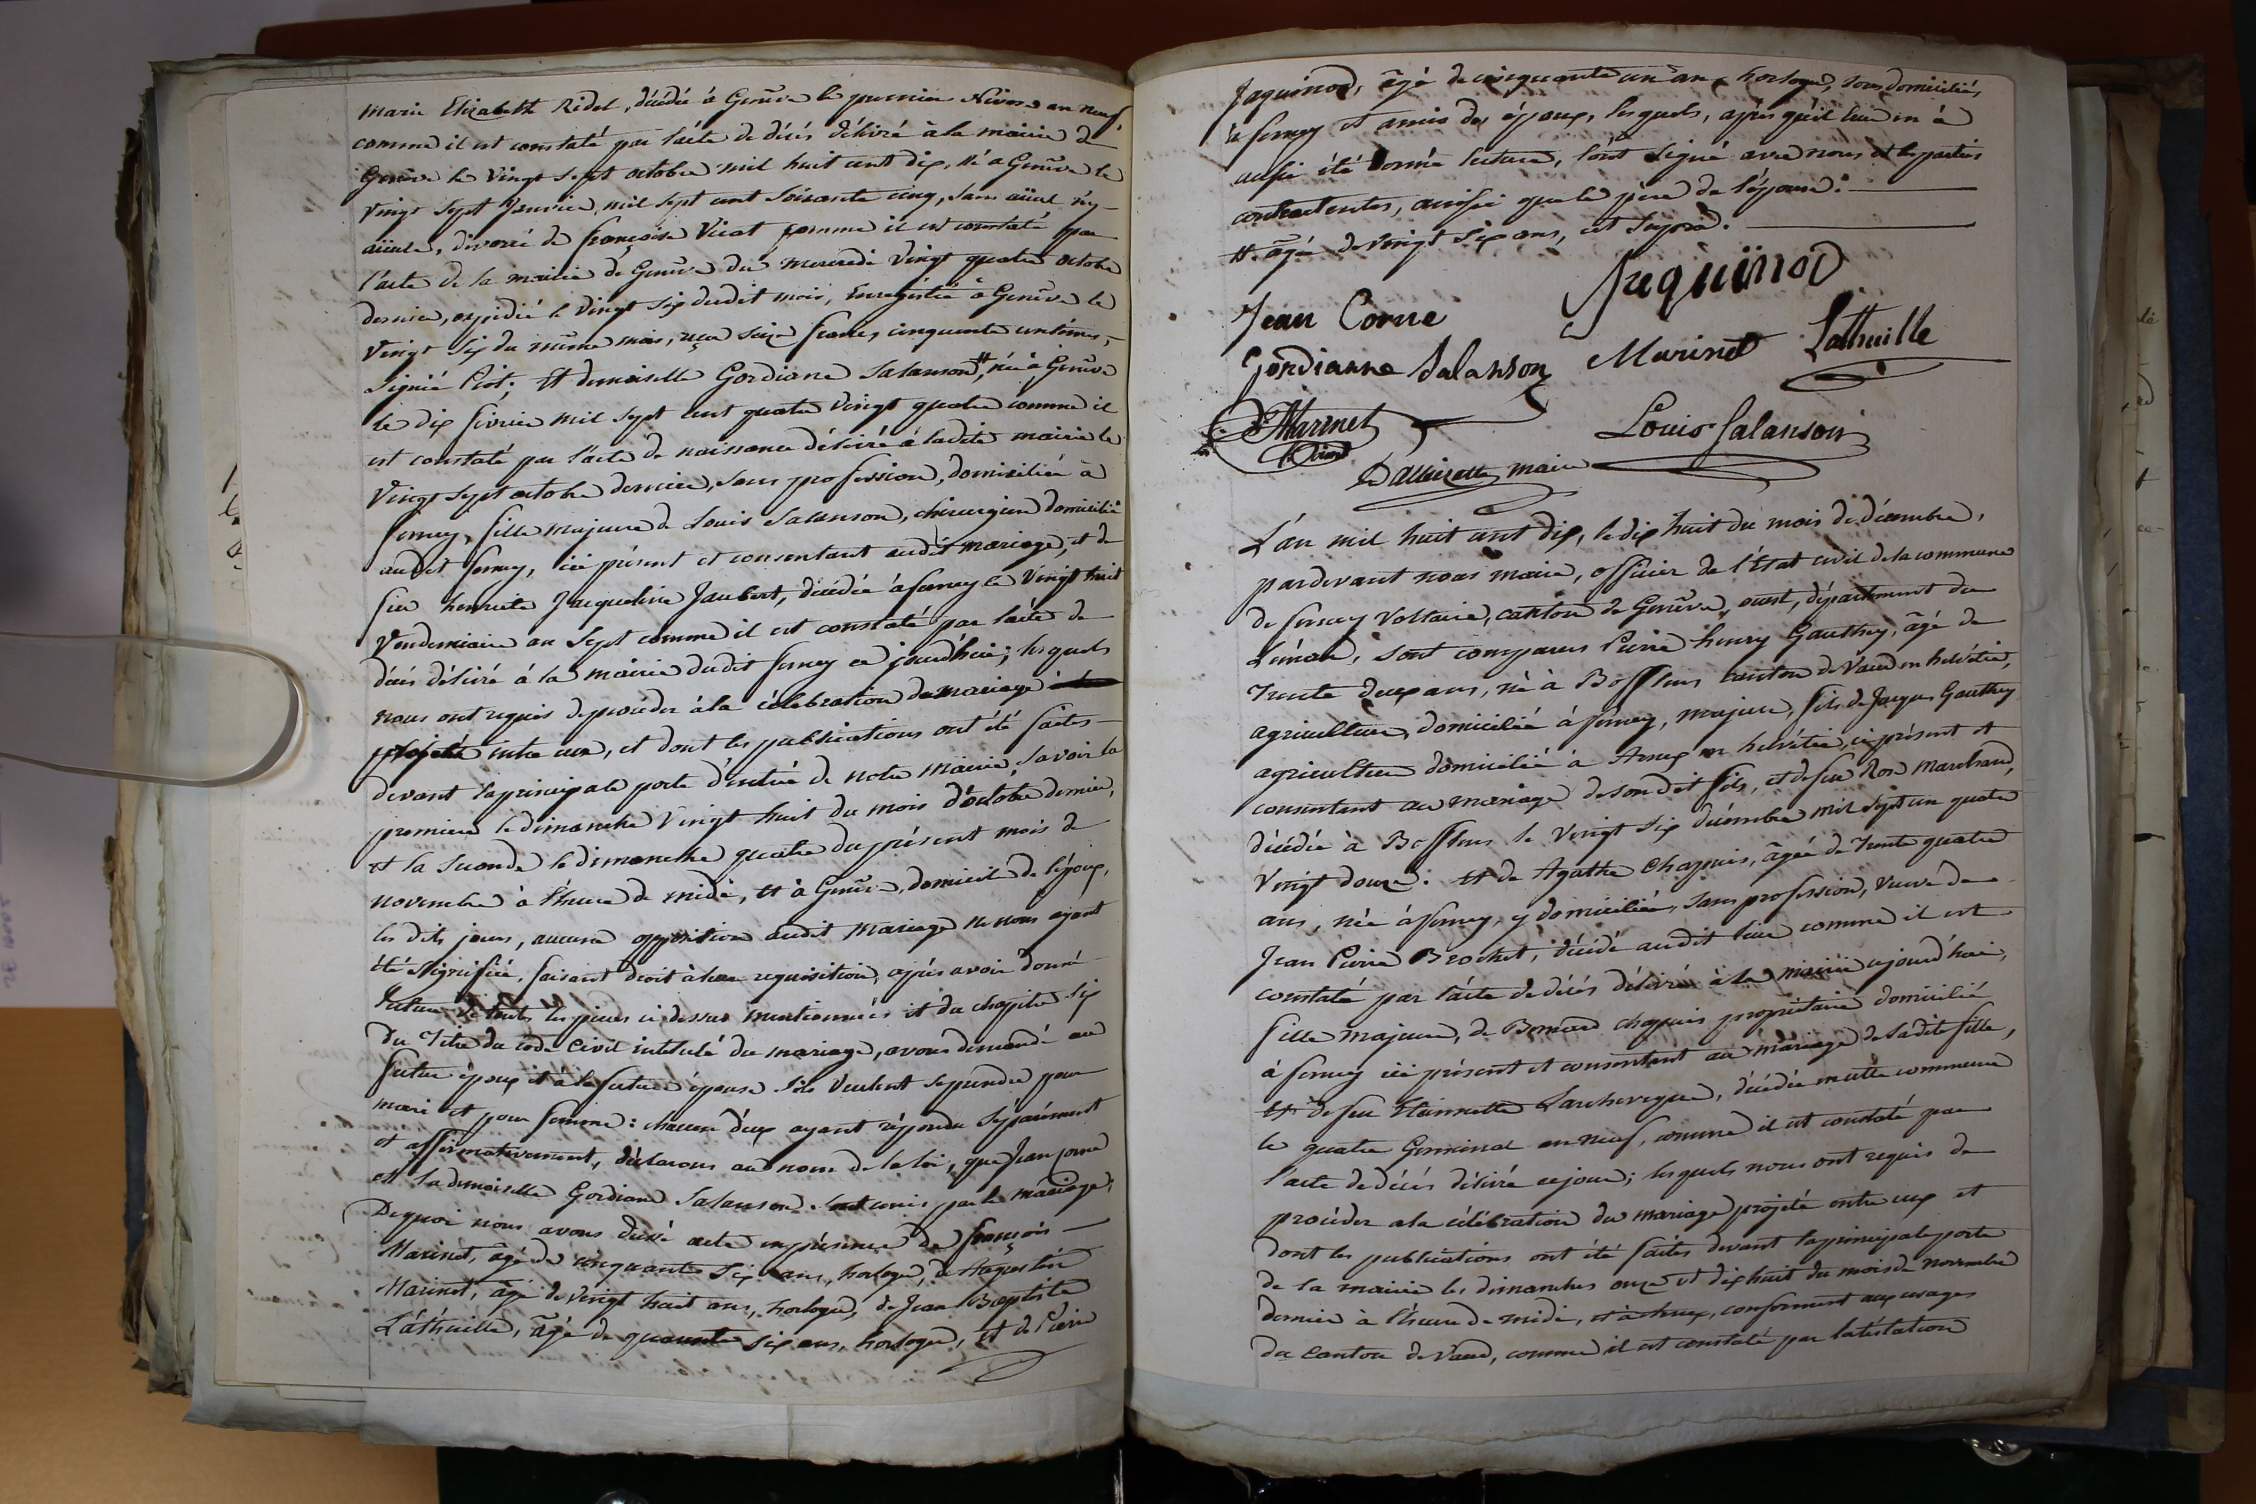 Marie Elizabeth Ridel, décédée à Genêve le premier Nivose an neuf,
comme il est constaté par l'acte de décès délivré à la mairie de
Genêve le vingt sept octobre mil huit cent dix, né a Genêve le
vingt sept Janvier mil sept cent soixante cinq, sans aïeul ny
aïeule, divorcé de françoise Vicat comme il est constaté par
l'acte de la mairie de Genêve du mercredi vingt quatre octobre
dernier, expédié le vingt six dudit mois, Enregistré à Genêve le
vingt six du même mois, reçu seize francs cinquante centimes,
signé Piot; et demoiselle Gordiane Salanson #, née à Genêve
le dix février mil sept cent quatre vingt quatre comme il
est constaté par l'acte de naissance délivré à ladite mairie le
vingt sept octobre dernier, sans profession, domiciliée à
ferney, fille majeure de Louis Salanson, chirurgien domicilié
audit ferney, ici présent et consentant audit mariage, et de
feu henriette Jacqueline Jaubert, décédée à ferney le vingt huit
Vendemiaire an sept comme il est constaté par l'acte de
décès délivré à la mairie dudit ferney ce jourd'hui; lesquels
nous ont requis de proceder à la célébration du mariage
projetté entre eux, et dont les publications ont été faites
devant la principale porte d'entrée de notre mairie, savoir la
premiere le dimanche vingt huit du mois d'octobre dernier,
et la seconde le dimanche quatre du présent mois de
novembre à l'heure de midi, et à Genêve, domicile de l'époux,
les dits jours, aucune opposition audit mariage ne nous ayant
été signifiée, faisant droit à leur requisition, après avoir donné
lecture de toutes les pièces ci dessus mentionnées et du chapitre six
du Titre du code Civil intitulé du mariage, avons demandé au
futur époux et à la future épouse s'ils veulent se prendre pour
mari et pour femme: chacun d'eux ayant répondu séparément
et affirmativement, déclarons au nom de la loi, que Jean Corne
et la demoiselle Gordiane Salanson sont unis par le mariage;
De quoi nous avons dressé acte en présence de françois
Marinet, âgé de cinquante six ans, horloger, de Augustin
Marinet, âgé de vingt huit ans, horloger, de Jean Baptiste
Lathuille, âgé de quarante six ans, horloger, et de Pierre
Jaquinod, âgé de cinquante un an, horloger, tous domiciliés
à ferney et amis des époux, lesquels, après qu'il leur en à
aussi été donné lecture, l'ont signé avec nous et les parties
contractantes, ainsi que le père de l'épouse.
# âgée de vingt six ans, est suposé.
Jaquinod
Jean Corne
Gordianne Salanson Marinet Lathuille
Marinet
Louis Salanson
maire
L'an mil huit cent dix, le dix huit du mois de décembre,
pardevant nous maire, officier de l'état civil de la commune
de ferney Voltaire, canton de Genêve, ouest, département du
Léman, sont comparus Pierre henry Gauthey, âgé de
Trente deux ans, né à Bofflens canton de Vaud en helvétie,
agriculteur, domicilié à ferney, majeur, fils de Jaques Gauthey
agriculteur domicilié à Arnex en helvétie, ici présent et
consentant au mariage de son dit fils, et de feu Rose Marchand,
décédée à Bofflens le vingt six décembre mil sept cen quatre
vingt douze. Et de Agathe Chapuis, âgée de Trente quatre
ans, née à ferney, y domiciliée, sans profession, veuve de
Jean Pierre Brochet, décédé audit lieu comme il est
constaté par l'acte de décès délivré à la mairie cejourd'hui,
fille majeure, de Bernard chapuis propriétaire domicilié
à ferney ici présent et consentant au mariage de sadite fille,
et de feu Etiennette Larchevêque, décédée en cette commune
le quatre Germinal an neuf, comme il est constaté par
l'acte de décès délivré ce jour; lesquels nous ont requis de
procéder a la célébration du mariage projeté entre eux et
dont les publications ont été faites devant la principale porte
de la mairie les dimanches onze et dix huit du mois de novembre
dernier à l'heure de midi, et à Arnex, conforment aux usages
du Canton de Vaud, comme il est constaté par l'atestation